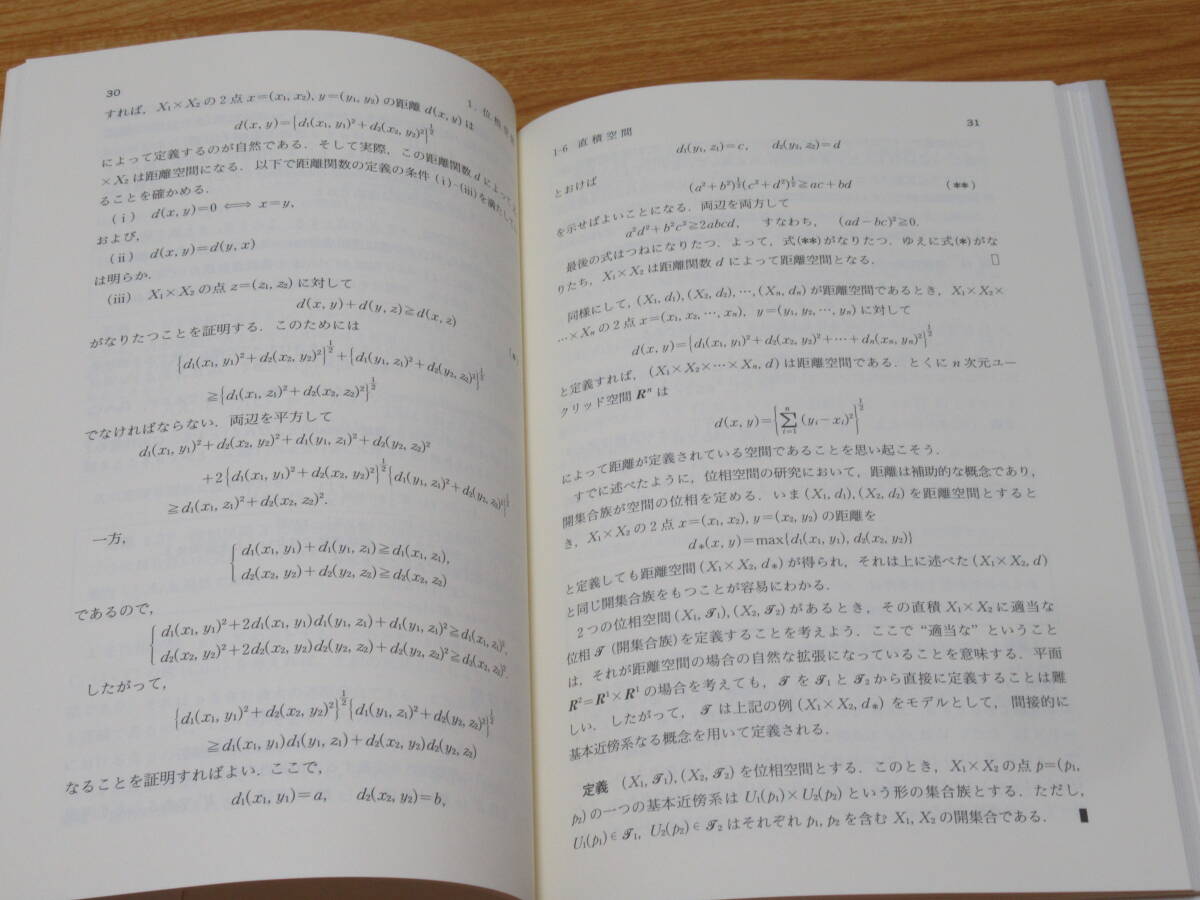 30
1. 位相
すれば，X₁×X₂ の2点 x=(x₁, x₂), y=(y₁, y₂) の距離 d(x, y) は
d(x, y)={d₁(x₁, y₁)²+d₂(x₂, y₂)²}^{1/2}
によって定義するのが自然である．そして実際，この距離関数 d によって
×X₂ は距離空間になる．以下で距離関数の定義の条件 (i)-(iii) を満たして
ることを確かめる．
(i) d(x, y)=0 ⟺ x=y,
および，
(ii) d(x, y)=d(y, x)
は明らか．
(iii) X₁×X₂ の点 z=(z₁, z₂) に対して
d(x, y)+d(y, z)≧d(x, z)
がなりたつことを証明する．このためには
{d₁(x₁, y₁)²+d₂(x₂, y₂)²}^{1/2}+{d₁(y₁, z₁)²+d₂(y₂, z₂)²}^{1/2} (*)
≧{d₁(x₁, z₁)²+d₂(x₂, z₂)²}^{1/2}
でなければならない．両辺を平方して
d₁(x₁, y₁)²+d₂(x₂, y₂)²+d₁(y₁, z₁)²+d₂(y₂, z₂)²
+2{d₁(x₁, y₁)²+d₂(x₂, y₂)²}^{1/2}{d₁(y₁, z₁)²+d₂(y₂, z₂)²}^{1/2}
≧d₁(x₁, z₁)²+d₂(x₂, z₂)².
一方，
{d₁(x₁, y₁)+d₁(y₁, z₁)≧d₁(x₁, z₁),
d₂(x₂, y₂)+d₂(y₂, z₂)≧d₂(x₂, z₂)
であるので，
{d₁(x₁, y₁)²+2d₁(x₁, y₁)d₁(y₁, z₁)+d₁(y₁, z₁)²≧d₁(x₁, z₁)²,
d₂(x₂, y₂)²+2d₂(x₂, y₂)d₂(y₂, z₂)+d₂(y₂, z₂)²≧d₂(x₂, z₂)².
したがって，
{d₁(x₁, y₁)²+d₂(x₂, y₂)²}^{1/2}{d₁(y₁, z₁)²+d₂(y₂, z₂)²}^{1/2}
≧d₁(x₁, y₁)d₁(y₁, z₁)+d₂(x₂, y₂)d₂(y₂, z₂)
なることを証明すればよい．ここで，
d₁(x₁, y₁)=a, d₂(x₂, y₂)=b,
1-6 直積空間
31
d₁(y₁, z₁)=c, d₂(y₂, z₂)=d
とおけば
(a²+b²)^{1/2}(c²+d²)^{1/2}≧ac+bd (**)
を示せばよいことになる．両辺を両方して
a²d²+b²c²≧2abcd, すなわち， (ad−bc)²≧0.
最後の式はつねになりたつ．よって，式(**)がなりたつ．ゆえに式(*)がな
りたち，X₁×X₂ は距離関数 d によって距離空間となる． □
同様にして，(X₁, d₁), (X₂, d₂), …, (Xₙ, dₙ) が距離空間であるとき，X₁×X₂×
…×Xₙ の2点 x=(x₁, x₂, …, xₙ), y=(y₁, y₂, …, yₙ) に対して
d(x, y)={d₁(x₁, y₁)²+d₂(x₂, y₂)²+…+dₙ(xₙ, yₙ)²}^{1/2}
と定義すれば，(X₁×X₂×…×Xₙ, d) は距離空間である．とくに n 次元ユー
クリッド空間 Rⁿ は
d(x, y)={∑_{i=1}^{n}(yᵢ−xᵢ)²}^{1/2}
によって距離が定義されている空間であることを思い起こそう．
すでに述べたように，位相空間の研究において，距離は補助的な概念であり，
開集合族が空間の位相を定める．いま (X₁, d₁), (X₂, d₂) を距離空間とすると
き，X₁×X₂ の2点 x=(x₁, x₂), y=(x₂, y₂) の距離を
d*(x, y)=max{d₁(x₁, y₁), d₂(x₂, y₂)}
と定義しても距離空間 (X₁×X₂, d*) が得られ，それは上に述べた (X₁×X₂, d)
と同じ開集合族をもつことが容易にわかる．
2つの位相空間 (X₁, 𝒯₁), (X₂, 𝒯₂) があるとき，その直積 X₁×X₂ に適当な
位相 𝒯 (開集合族) を定義することを考えよう．ここで “適当な” ということ
は，それが距離空間の場合の自然な拡張になっていることを意味する．平面
R²=R¹×R¹ の場合を考えても，𝒯 を 𝒯₁ と 𝒯₂ から直接に定義することは難
しい．したがって，𝒯 は上記の例 (X₁×X₂, d*) をモデルとして，間接的に
基本近傍系なる概念を用いて定義される．
定義 (X₁, 𝒯₁), (X₂, 𝒯₂) を位相空間とする．このとき，X₁×X₂ の点 p=(p₁,
p₂) の一つの基本近傍系は U₁(p₁)×U₂(p₂) という形の集合族とする．ただし，
U₁(p₁)∈𝒯₁, U₂(p₂)∈𝒯₂ はそれぞれ p₁, p₂ を含む X₁, X₂ の開集合である． ▮